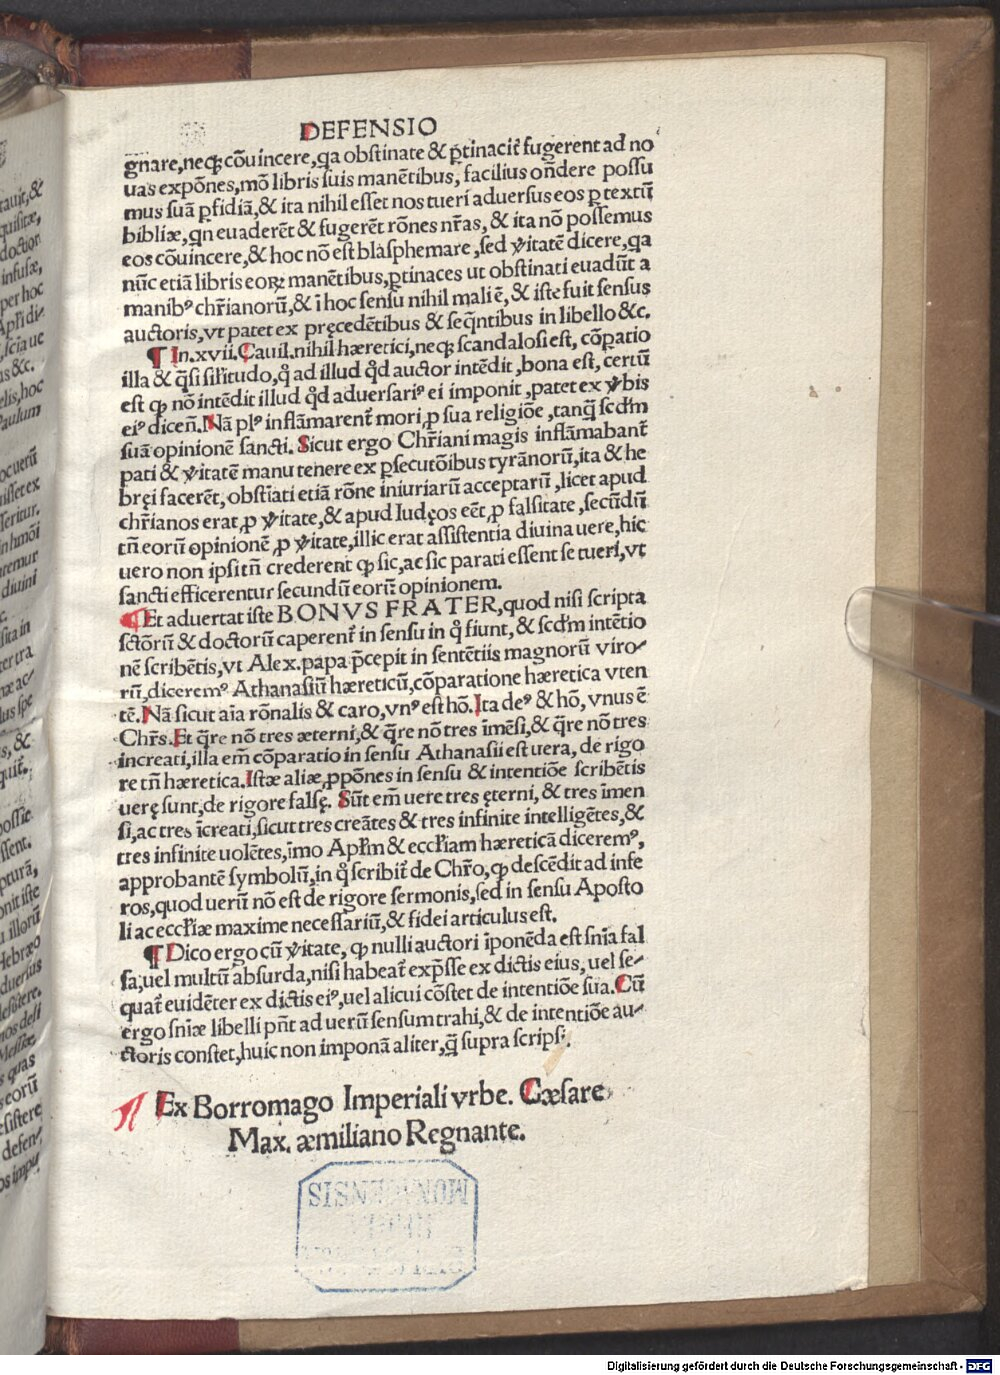 DEFENSIO
gnare,neqꝫ cõuincere,qa obstinate & ꝑtinacit̃ fugerent ad no
uas expõnes,mõ libris suis manẽtibus, facilius oñdere possu
mus suã ꝑfidiã,& ita nihil esset nos tueri aduersus eos ꝑ textũ
bibliæ,qñ euaderẽt & fugerẽt rõnes nr̃as, & ita nõ possemus
eos cõuincere,& hoc nõ est blasphemare,sed ꝟitatẽ dicere,qa
nũc etiã libris eorꝝ manẽtibus,ꝑtinaces ut obstinati euadũt a
manibꝰ chr̃ianorũ,& ĩ hoc sensu nihil mali ẽ, & iste fuit sensus
auctoris,vt patet ex pręcedẽtibus & seq̃ntibus in libello &c.
¶ In.xvii.Cauil.nihil hæretici,neqꝫ scandalosi est, cõꝑatio
illa & q̃si sil̃itudo,q̊ ad illud q̊d auctor intẽdit,bona est, certũ
est ꝙ nõ intẽdit illud q̊d aduersariꝰ ei imponit,patet ex ꝟbis
eiꝰ diceñ.Nã plꝰ inflãmarent̃ mori,ꝓ sua religiõe,tanq̃ scd̃m
suã opinionẽ sancti. Sicut ergo Chr̃iani magis inflãmabant̃
pati & ꝟitatẽ manu tenere ex ꝑsecutõibus tyrãnorũ,ita & he
bręi facerẽt,obstĩati etiã rõne iniuriarũ acceptarũ,licet apud
chr̃ianos erat,ꝓ ꝟitate,& apud Iudęos eẽt,ꝓ falsitate,secũdũ
tñ eorũ opinionẽ,ꝓ ꝟitate,illic erat assistentia diuina uere,hic
uero non ipsi tñ crederent ꝙ sic,ac sic parati essent se tueri,vt
sancti efficerentur secundũ eorũ opinionem.
¶ Et aduertat iste BONVS FRATER,quod nisi scripta
sctõrũ & doctorũ caperent̃ in sensu in q̊ fiunt, & scd̃m intẽtio
nẽ scribẽtis,vt Alex.papa p̃cepit in sentẽtiis magnorũ viro-
rũ,diceremꝰ Athanasiũ hæreticũ,cõparatione hæretica vten
tẽ.Nã sicut aĩa rõnalis & caro,vnꝰ est hõ.Ita deꝰ & hõ, vnus ẽ
Chr̃s.Et q̃re nõ tres æterni,& q̃re nõ tres ĩmẽsi,& q̃re nõ tres
increati,illa em̃ cõparatio in sensu Athanasii est uera, de rigo
re tñ hæretica.Istæ aliæ,ꝓpõnes in sensu & intentiõe scribẽtis
uerę sunt,de rigore falsę. Sũt em̃ uere tres ęterni, & tres ĩmen
si,ac tres ĩcreati,sicut tres creãtes & tres infinite intelligẽtes,&
tres infinite uolẽtes,ĩmo Apl̃m & eccl̃iam hæreticã diceremꝰ,
approbantẽ symbolũ,in q̊ scribit̃ de Chr̃o,ꝙ descẽdit ad infe
ros,quod uerũ nõ est de rigore sermonis,sed in sensu Aposto
li ac eccl̃iæ maxime necessariũ,& fidei articulus est.
¶ Dico ergo cũ ꝟitate, ꝙ nulli auctori ĩponẽda est sñia fal
sa,uel multũ absurda,nisi habeat̃ exp̃sse ex dictis eius, uel se-
quat̃ euidẽter ex dictis eiꝰ,uel alicui cõstet de intentiõe sua.Cũ
ergo sñiæ libelli pñt ad uerũ sensum trahi,& de intentiõe au-
ctoris constet,huic non imponã aliter,q̃ supra scripsi.
¶ Ex Borromago Imperiali vrbe. Cæsare
Max. æmiliano Regnante.
MONACENSIS
Digitalisierung gefördert durch die Deutsche Forschungsgemeinschaft - DFG